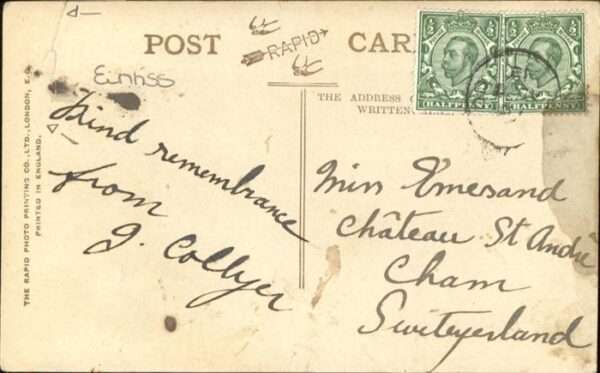 POST CARD
RAPID
Einhss
THE ADDRESS
WRITTEN
HALFPENNY HALFPENNY
Kind remembrance
from
J. Collyer
Miss Emesand
Château St André
Cham
Switzerland
THE RAPID PHOTO PRINTING CO., LTD., LONDON, E.C.
PRINTED IN ENGLAND.